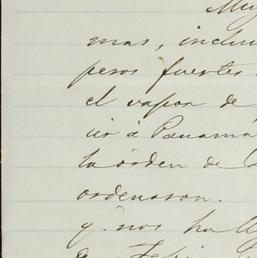 Muy
mas, inclu
pesos fuertes
el vapor de
ir á Panamá
la órden de
ordenaron.
y. nos ha
de